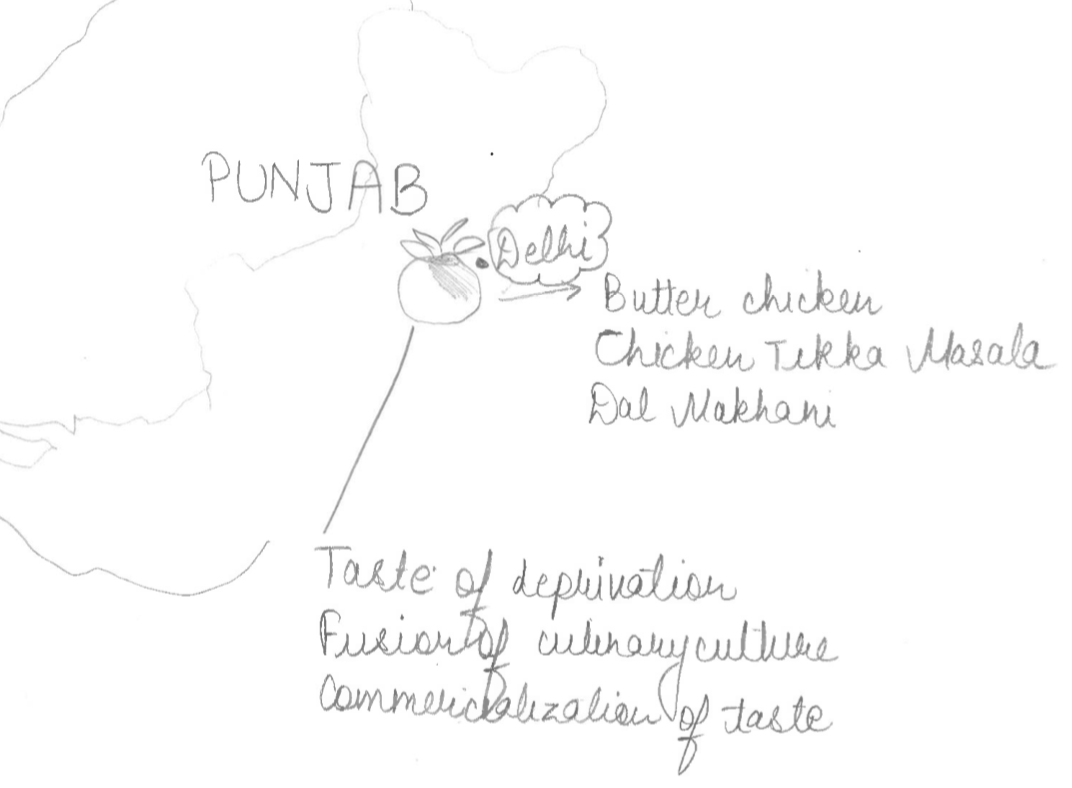 PUNJAB
Delhi
Butter chicken
Chicken Tikka Masala
Dal Makhani
Taste of deprivation
Fusion of culinary culture
Commercialization of taste